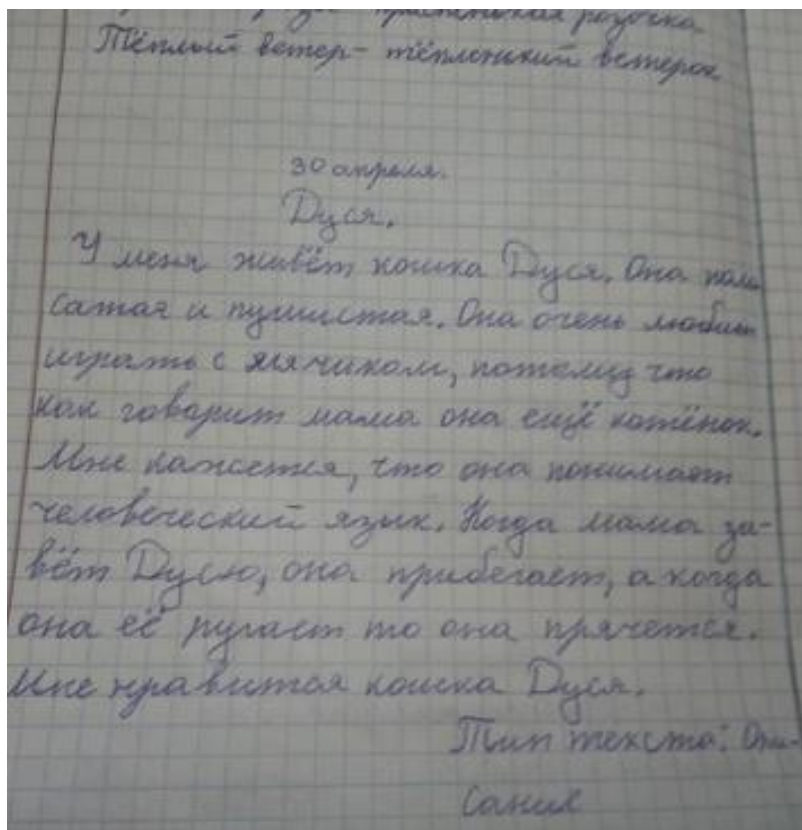 розочка
Тёплый ветер - тёпленький ветерок
30 апреля.
Дуся.
У меня живёт кошка Дуся. Она поло
сатая и пушистая. Она очень любит
играть с мячиком, потому что
как говорит мама она ещё котёнок.
Мне кажется, что она понимает
человеческий язык. Когда мама за-
вёт Дусю, она прибегает, а когда
она её ругает то она прячется.
Мне нравится кошка Дуся.
Тип текста: Опи-
сание